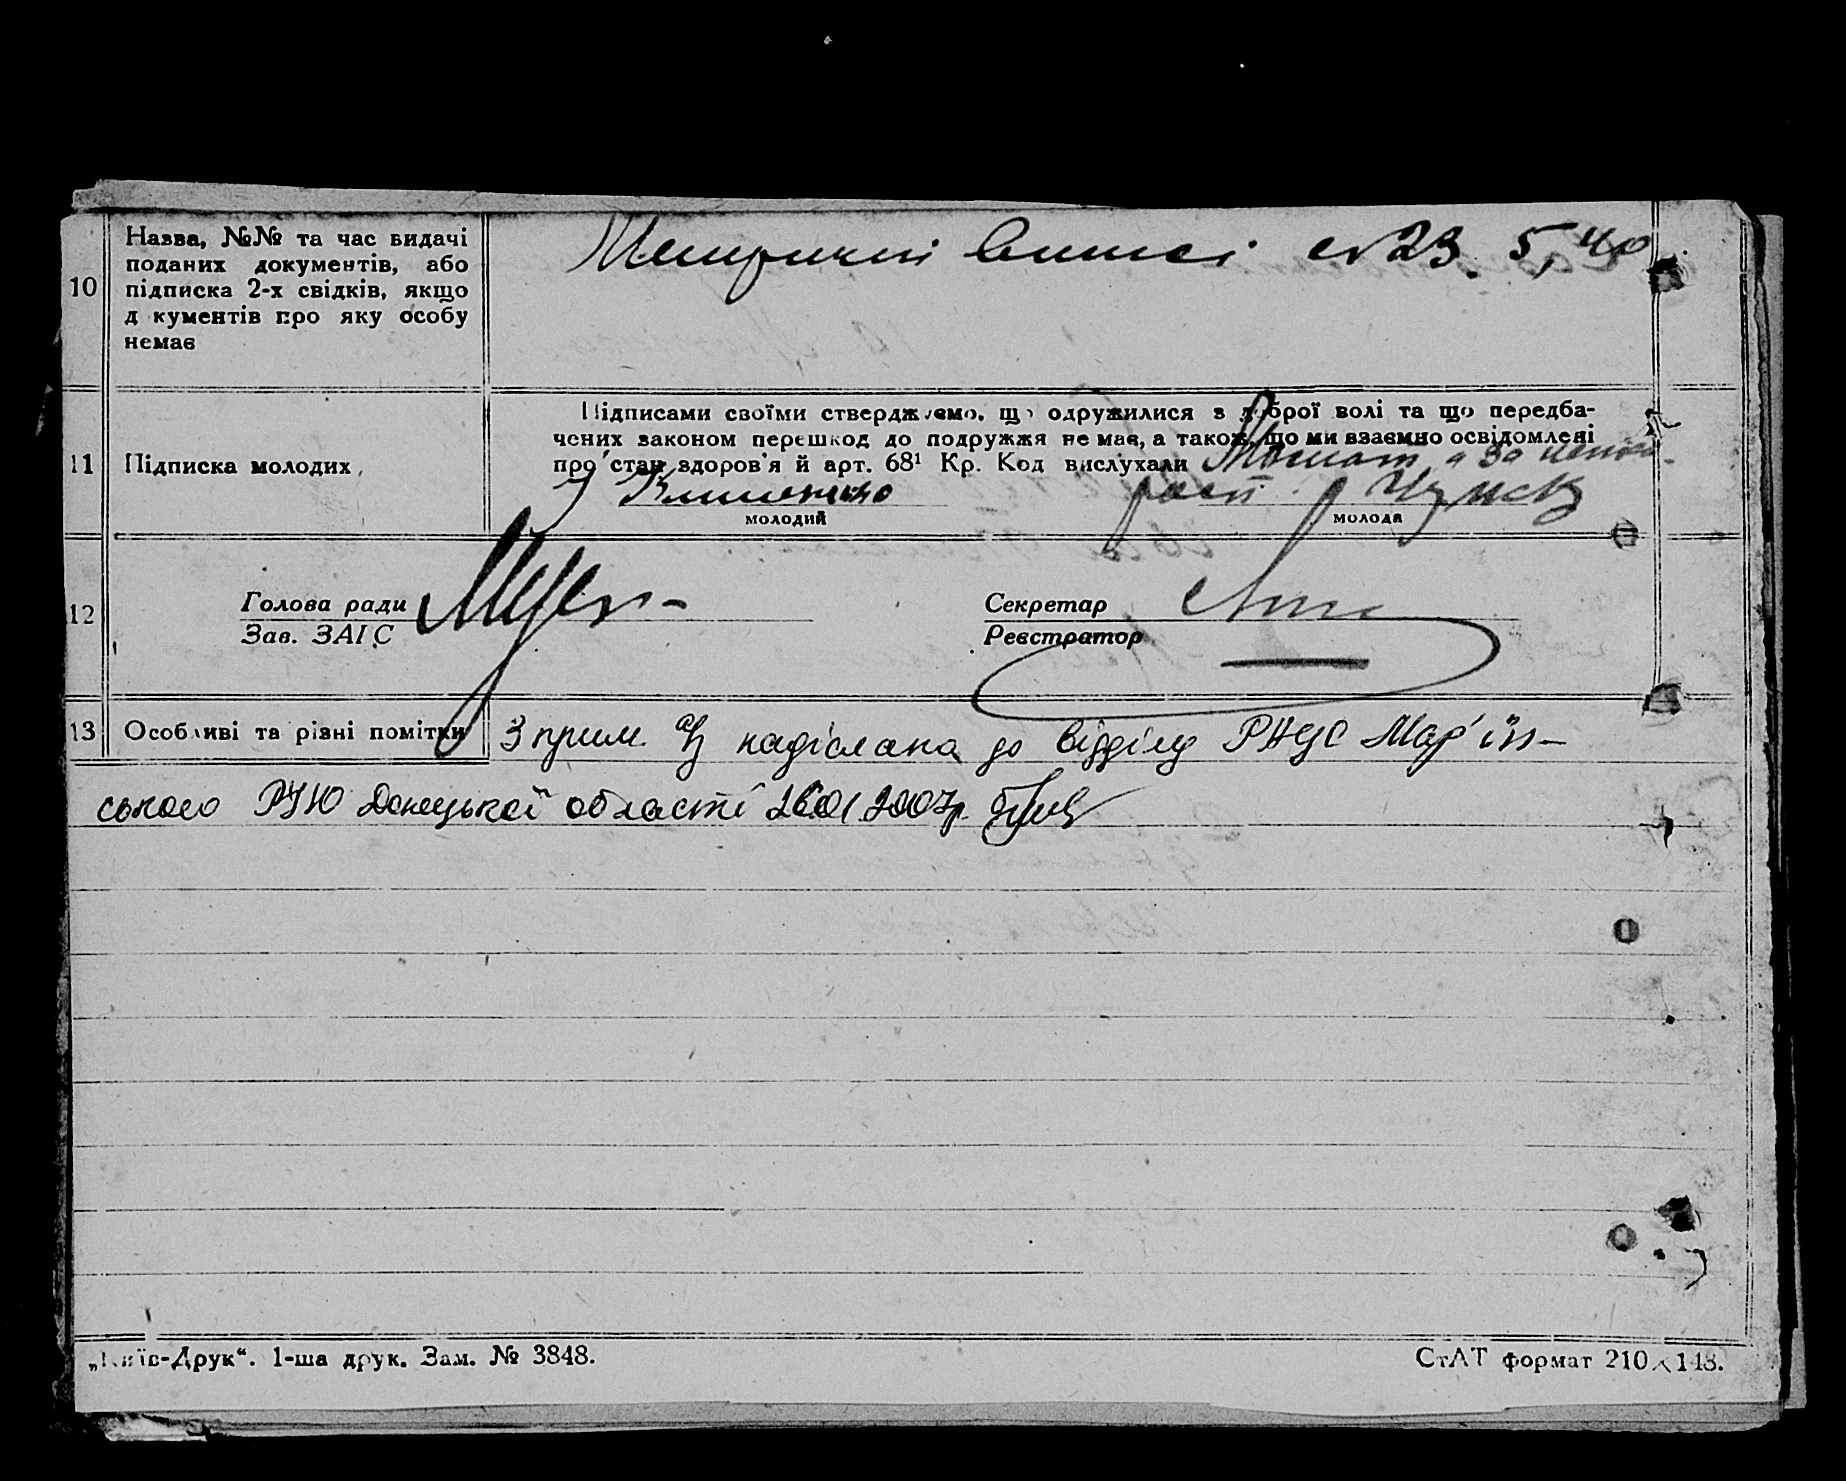 10
Назва, №№ та час видачі
поданих документів, або
підписка 2-х свідків, якщо
д кументів про яку особу
немає
Метричні виписі 23. 5, 40
11
Підписка молодих
Підписами своїми стверджуємо, що одружилися з доброї волі та що передба-
чених законом перешкод до подружжя не має, а також, що ми взаємно освідомлені
про стан здоров'я й арт. 68¹ Кр. Код вислухали
молодий
молода
12
Голова ради
Зав. ЗАГС
Секретар
Реєстратор
13
Особливі та різні помітки
З прим. надіслана до відділу РАЦС Мар'їн-
ського РУЮ Донецької області 2007р.
„Київ-Друк“. 1-ша друк. Зам. № 3848.
СтАТ формат 210×148.